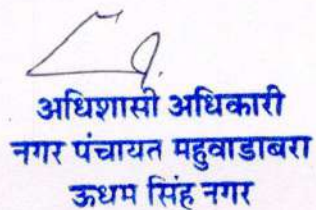 अधिशासी अधिकारी
नगर पंचायत महुवाडाबरा
ऊधम सिंह नगर